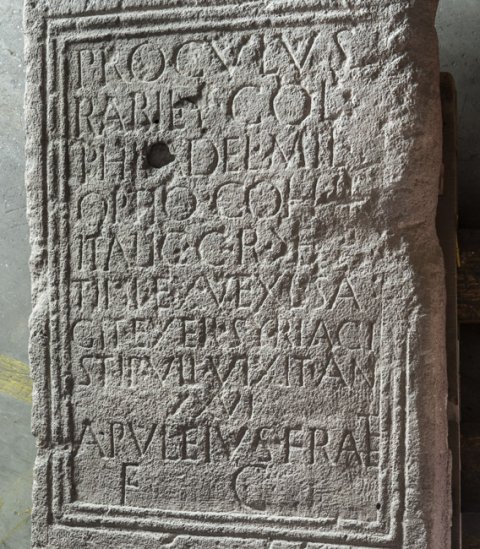 PROCULUS
RABILI F COL
PHIL DEL MIL
OPTIO COH II
ITALIC C R
TINI EX VEXIL SA
GIT EXER SYRIACI
STIP VII VIXIT AN
XXVI
APULEIUS FRATE
F C